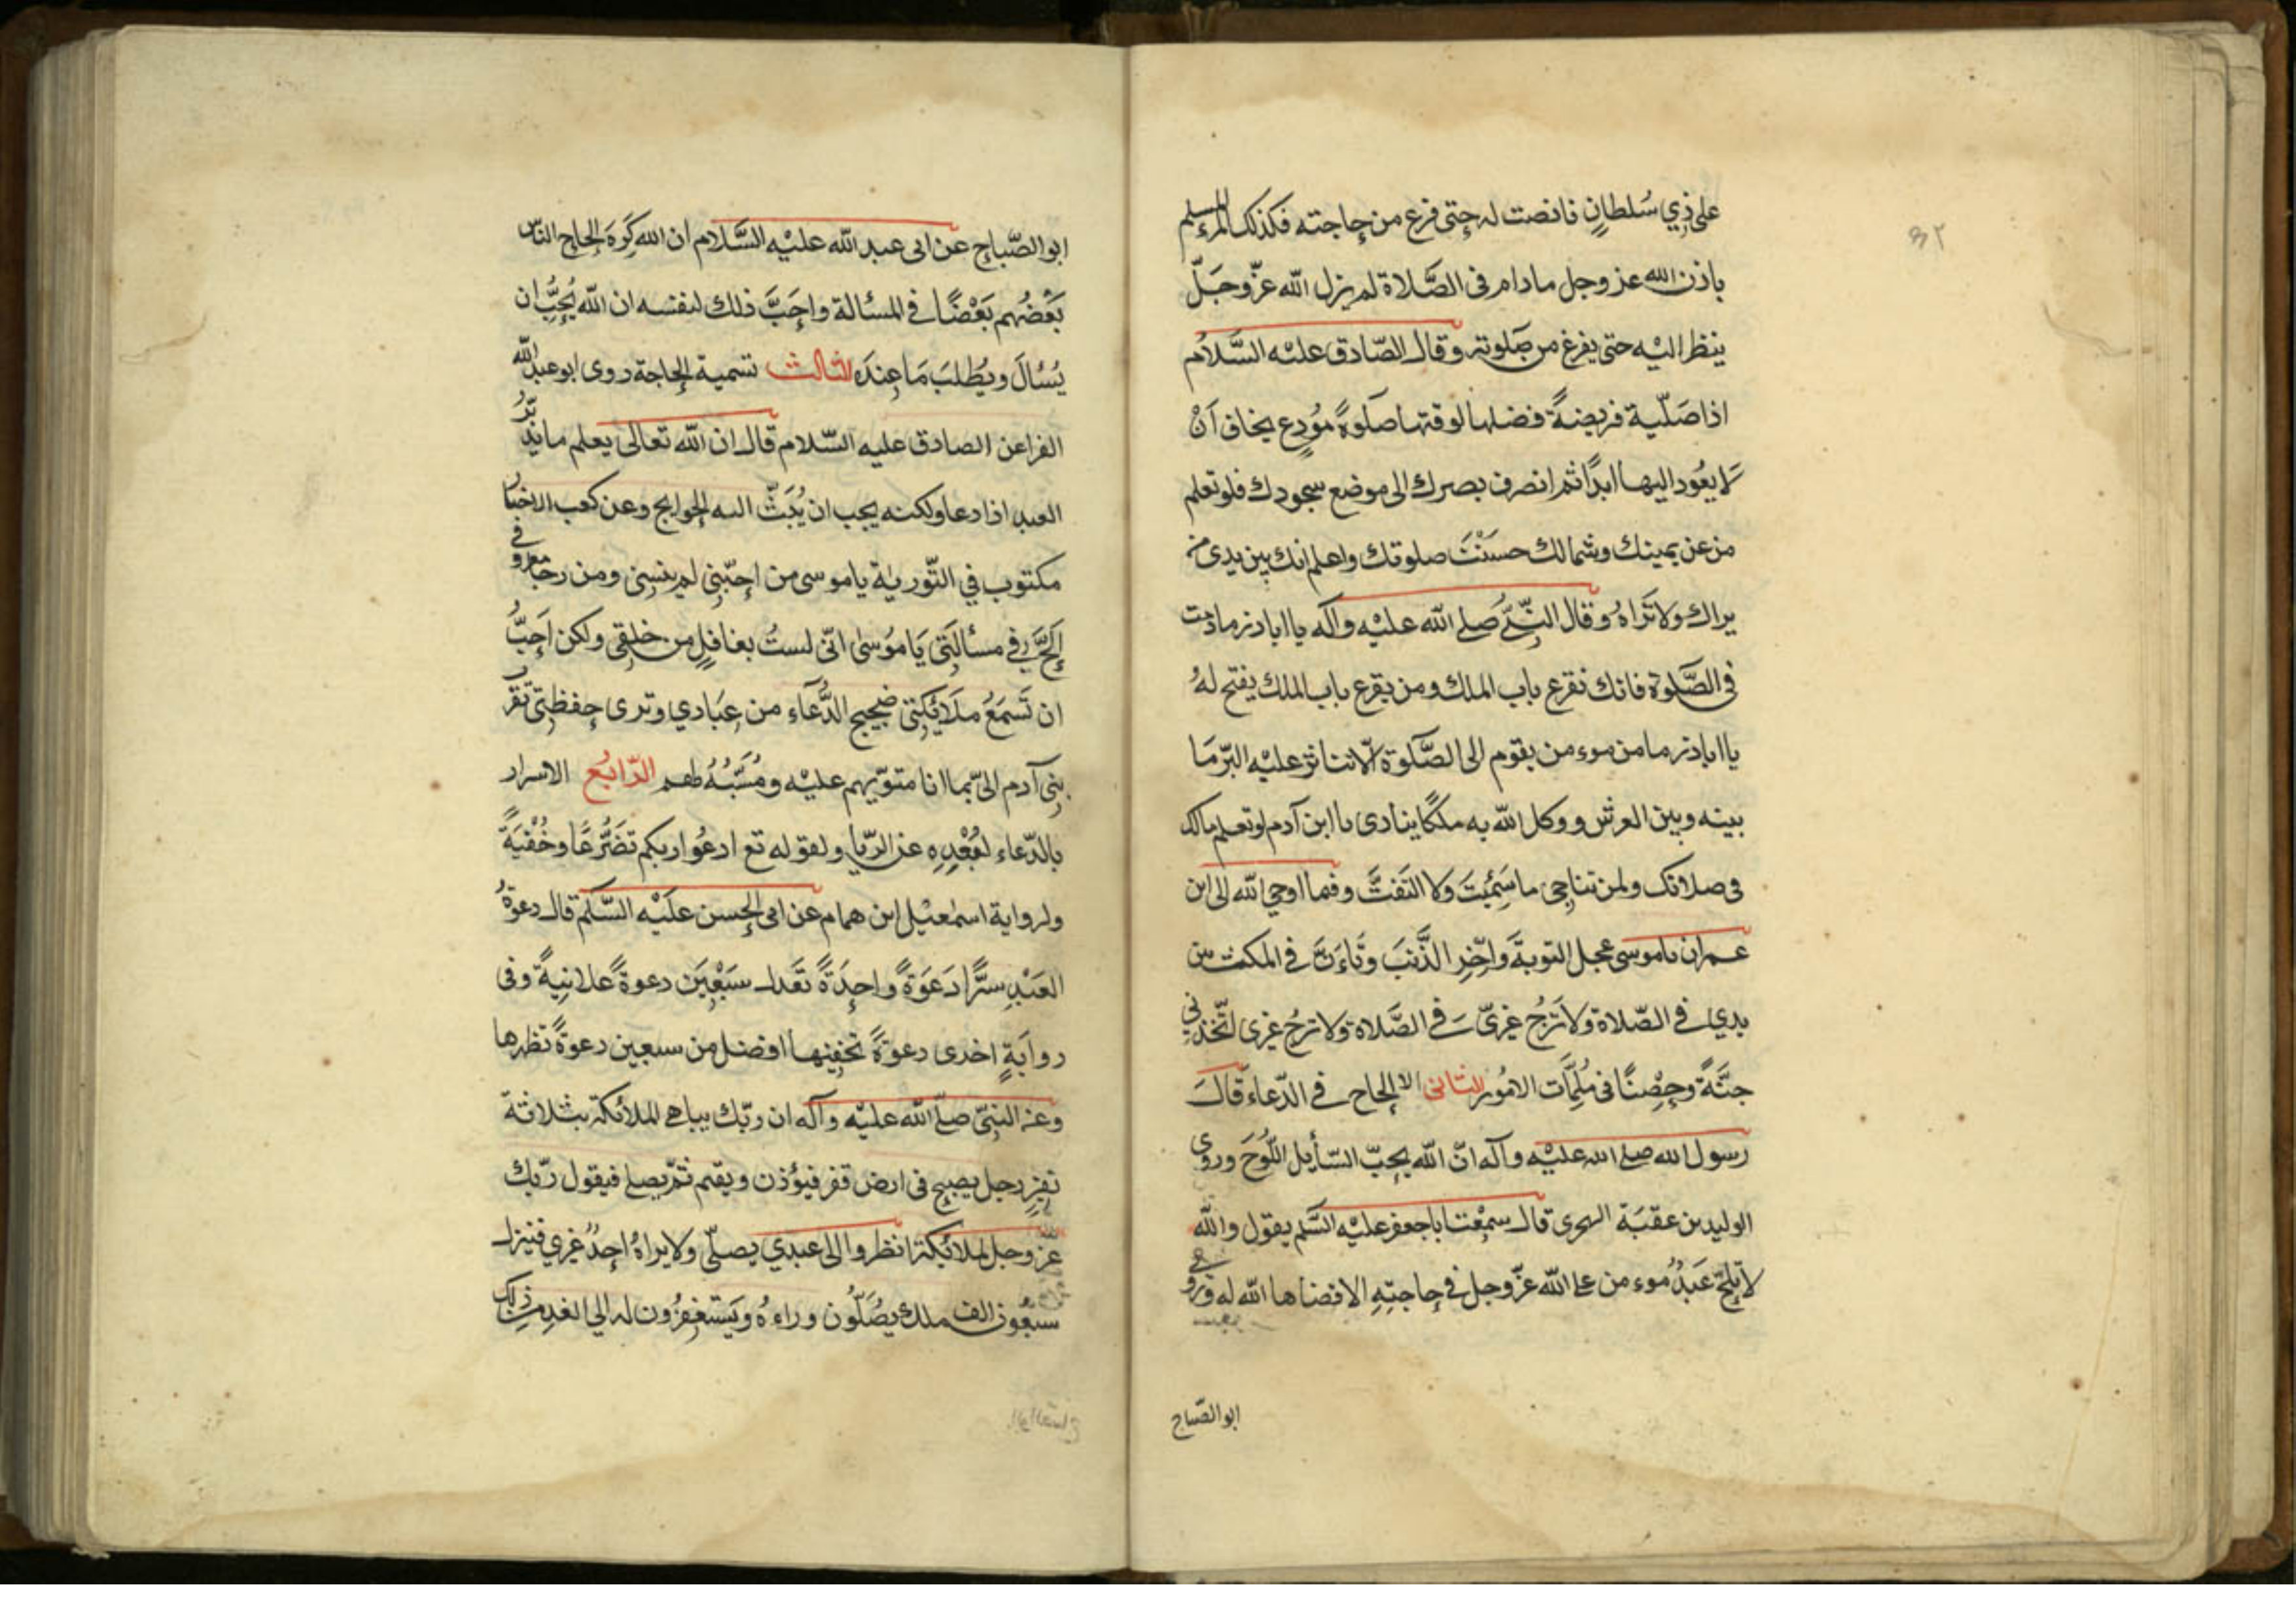 ٣٢
على ذِي سُلطانٍ فانصت له حتى فرغ من حاجته فكذلك المرء المسلم
باذن الله عز وجل مادام فى الصَّلاة لم يزل الله عزّ وجَلّ
ينظر اليْه حتى يفرغ من صَلوته وقال الصّادق عليْه السَّلام
اذا صَلّيت فريضةً فضلها لوقتها صَلوةَ مُودِع يخاف اَنْ
لَا يعُود اليهـا ابدًا ثم انصرف ببصرك الى موضع سجودك فلو تعلم
من عن يمينك وشمالك حسَنْتَ صلوتك واعلم انك بين يدى من
يراك ولا تَراهُ وقال النّبِىّ صلى الله عليْه وآله يا اباذر مادمت
فى الصَّلوة فانك تقرع باب الملك ومن يقرع باب الملك يفتح لهُ
يا اباذر ما من موءمن يقوم الى الصَّلوة الّا تناثر عليْه البرّ مَا
بينه وبين العرش ووكل الله به ملكًا ينادى يا ابن آدم لو تعلم مالك
فى صلاتك ولمن تناجى ما سَئِمْتَ وَلا التَفتَّ وفما اوحى الله الى ابن
عمران ياموسى عجل التوبةَ واخّرِ الذَّنبَ وتَأَنَّ فى المكث بين
يدي فى الصّلاة ولا تَرْجُ غيرىّ فى الصَّلاة ولا ترجُ غيرى اتّخذنى
جنَّةً وحِصْنًا فى مُلِمَّات الامُور الثانى الالحاح فى الدّعاء قالَ
رسول الله صلى الله عليْه وآله انّ الله يحِبّ السّايل اللّوُحَ وروى
الوليد بن عقبَة الهجرى قال سمِعْت اباجعفر عليْه السَّلم يقول والله
لا يلحّ عَبدٌ موءمن على الله عزّ وجل فى حاجتهِ الا قضاها الله له وروى
ابو الصّباح
ابو الصّباح عن ابى عبد الله عليْه السَّلام ان الله كَرِهَ الحاح النّاس
بَعْضُهم بَعْضًا فى المسالة واحَبَّ ذلك لنفسه ان الله يُحِبُّ ان
يُسْالَ ويُطْلبَ مَا عِندَه الثالث تسمية الحاجة روى ابوعبد الله
الفرا عن الصادق عليه السّلام قال ان الله تعالى يعلم ما يريدُ
العبد اذا دعا ولكنه يحب ان يُبَثّ اليه الحوايج وعن كعب الاحبار
مكتوب في التّوريٰة ياموسى من احبّنِي لم ينسنِى ومن رجا معروفى
اَلحَّ فى مسألَتِى يَا مُوسىٰ انّى لستُ بغافِلٍ من خلقِى ولكن اُحِبُّ
ان تَسمَعَ ملَائِكتِى ضجيج الدُّعَاءِ من عِبَادي وترى حِفظتِى تقرّب
بنِى آدم الىّ بما انا مقوّيهم عليْه ومُسَبِّبُهُ لهم الرّابعُ الاسرار
بالدّعاء لبُعْدِهِ عن الرّيا ولقوله تع ادعُوا ربكم تضَرُّعًا وخُفْيَةً
ولرواية اسمٰعيْل ابن همام عن ابى الحسن عليْه السَّلم قال دعوةُ
العَبْدِ سرًّا دَعوَةً واحِدَةً تعَدل سَبْعِيَن دعوةً علانِيةً وفى
روايَةٍ اخرى دعوةً تخفيهـا افضل من سبعين دعوةً تظهرها
وعن النبىّ صلّى الله عليْه وآله ان ربّك يباهى الملائكة بثلاثة
نفرٍ رجل يصبح فى ارض قفر فيؤذن ويقيم ثمّ يصلى فيقول ربّك
عز وجل لملائِكته انظروا الى عبدي يصلّى ولا يراهُ احدٌ غيري فينزل
سبعُون الف ملك يصُلّون وراءهُ ويَستغفِرُون له الي الغد من ذلك